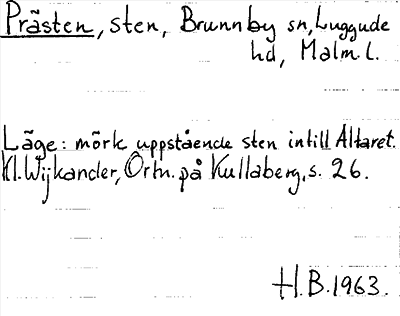 Prästen, sten, Brunnby sn, Luggude
hd, Malm. l.
Läge: mörk uppstående sten intill Altaret.
Kl. Wijkander, Ortn. på Kullaberg, s. 26.
H.B. 1963.